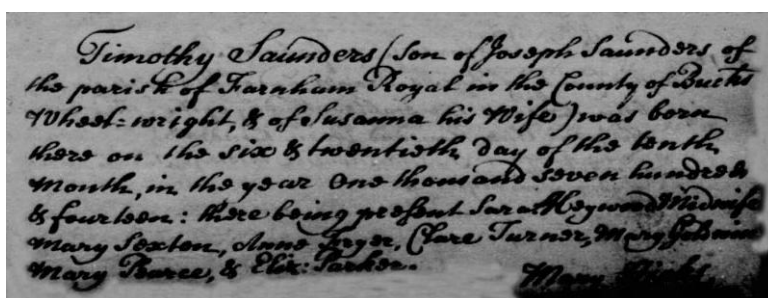 Timothy Saunders (son of Joseph Saunders of
the parish of Farnham Royal in the County of Bucks
Wheel=wright, & of Susanna his Wife) was born
there on the six & twentieth day of the tenth
month, in the year One thousand seven hundred
& fourteen: there being present Sara Heywood Midwife
Mary Sexton, Anne Fryer, Clare Turner, Mary
Mary Pearce, & Eliz: Parker.
Mary